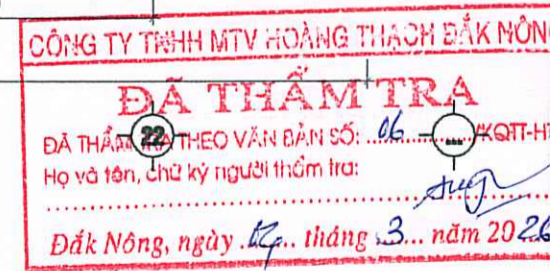 CÔNG TY TNHH MTV HOÀNG THẠCH ĐẮK NÔNG
ĐÃ THẨM TRA
ĐÃ THẨM TRA THEO VĂN BẢN SỐ: 06 /KQTT-H
22
...
Họ và tên, chữ ký người thẩm tra:
Đắk Nông, ngày tháng 3 năm 2026